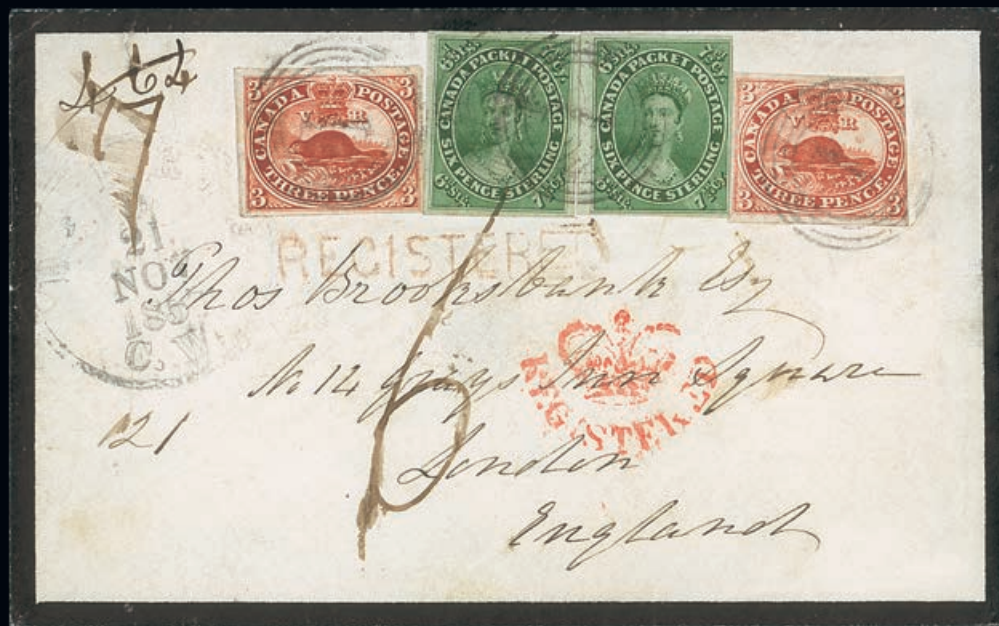 3 3
CANADA POSTAGE
V R
THREE PENCE.
3 3
6d Stg. 7½d Cy.
CANADA PACKET POSTAGE
SIX PENCE STERLING
6d Stg. 7½d Cy.
6d Stg. 7½d Cy.
CANADA PACKET POSTAGE
SIX PENCE STERLING
6d Stg. 7½d Cy.
3 3
CANADA POSTAGE
V R
THREE PENCE.
3 3
21
NO
185
C. W
REGISTERED
Thos Brooksbank Esq
No 14 Grays Inn Square
REGISTERED
121
London
England